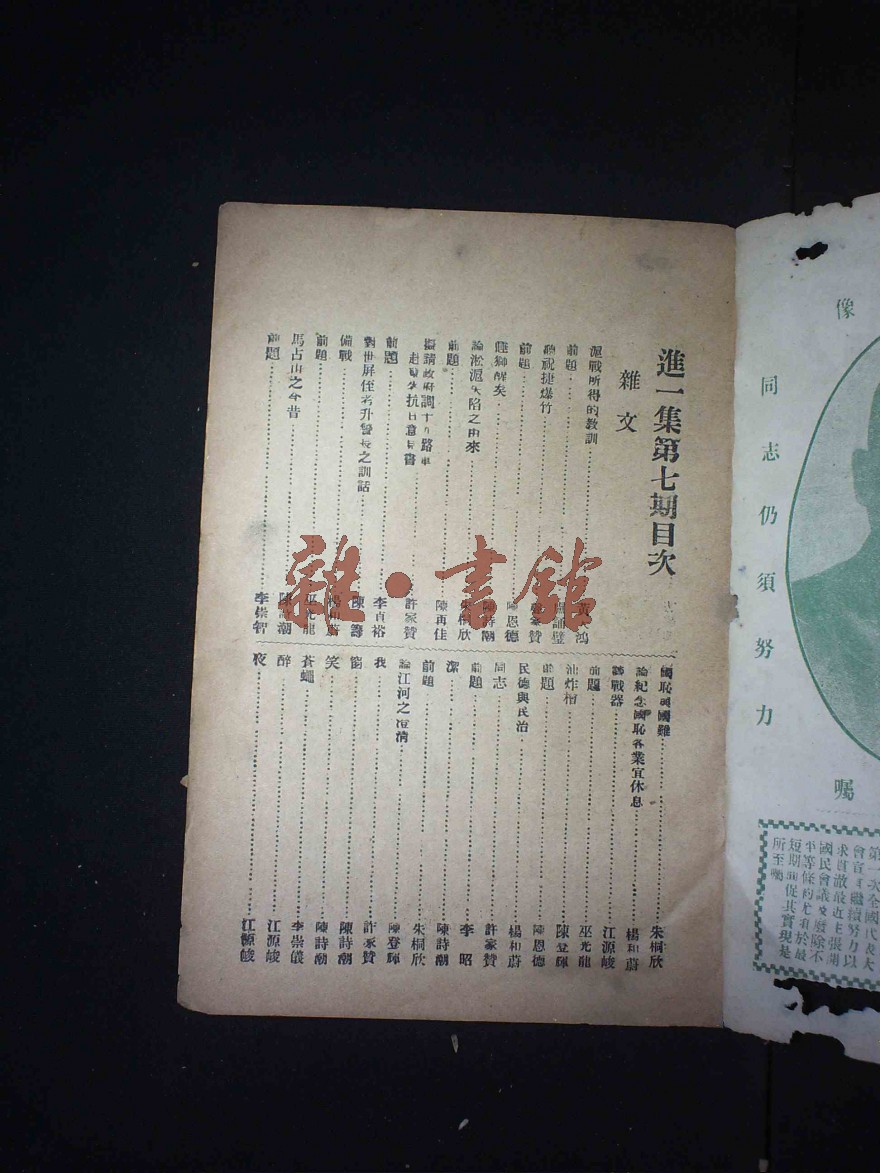 進一集第七期目次
雜文
滬戰所得的教訓
前題
聽祝捷爆竹
前題 陳恩德
睡獅醒矣 陳詩潮
論淞滬失陷之由來 朱桐欣
前題 陳再佳
擬請政府調十九路軍
赴 抗日意見書 許家贊
前題 李貞裕
對世屏侄考升警長之訓話 陳籌
備戰 楊和蔚
前題 巫光龍
馬占山之今昔 陳詩潮
前題 李崇智
國恥與國難 朱桐欣
論紀念國恥各業宜休息 楊和蔚
戰器 江源峻
前題 巫光龍
油炸檜 陳登輝
前題 陳恩德
民德與民治 楊和蔚
同志 許家贊
前題 李昭
潔 陳詩潮
前題 朱桐欣
論江河之澄清 陳登輝
我 許家贊
劉 陳詩潮
笑 陳詩潮
蒼蠅 李崇儀
醉 江源峻
夜 江源峻
雜·書館
像
同志仍須努力
囑
第一次全國代表大
會宣言繼續努力以
求貫澈最近主張開
國民會議及廢除不
平等條約尤須於最
短期間促其實現是
所至囑